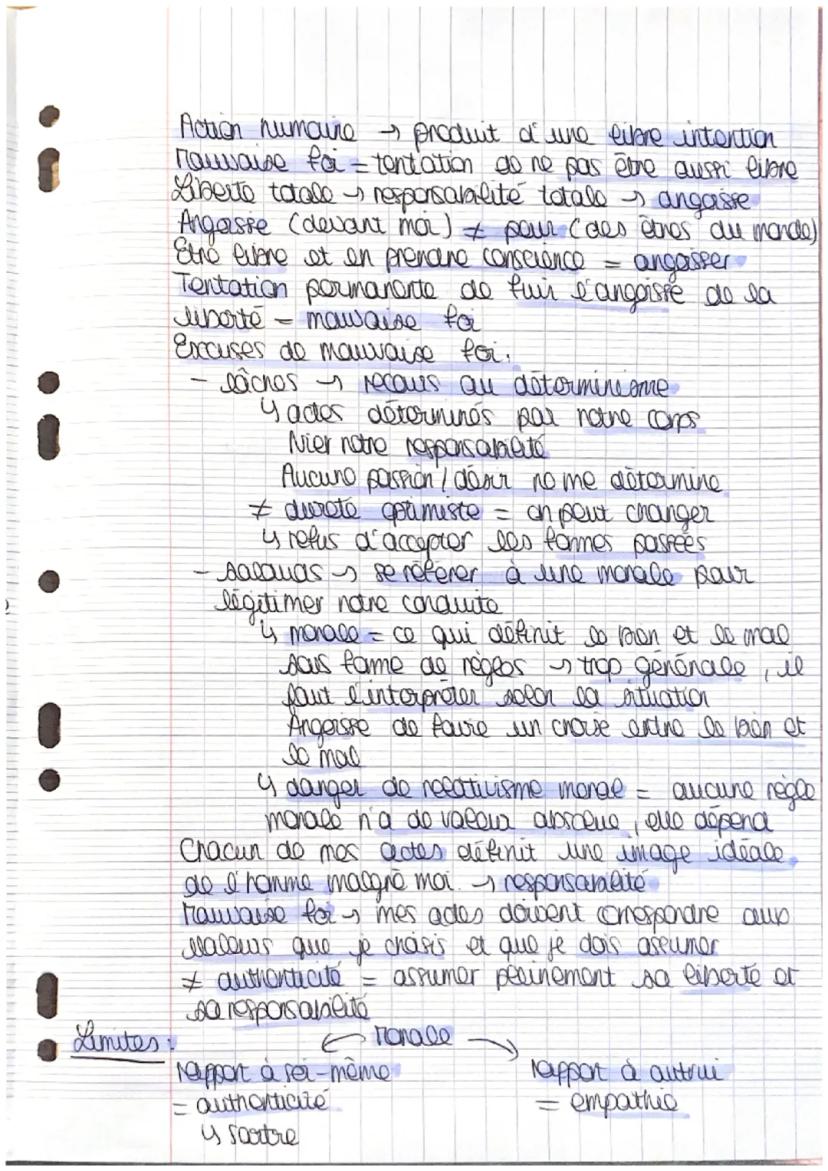 Action humaine → produit d'une libre intention
Mauvaise foi = tentation de ne pas être aussi libre
Liberté totale → responsabilité totale → angoisse
Angoisse (devant moi) ≠ peur (des êtres du monde)
Etre libre et en prendre conscience = angoisser
Tentation permanente de fuir l'angoisse de la
liberté = mauvaise foi
Excuses de mauvaise foi :
- lâches → recours au déterminisme
↳ actes déterminés par notre corps
Nier notre responsabilité
Aucune passion / désir ne me détermine
≠ dureté optimiste = on peut changer
↳ refus d'accepter les formes passées
- salauds → se référer à une morale pour
légitimer notre conduite
↳ morale = ce qui définit le bien et le mal
sous forme de règles → trop générale, il
faut l'interpréter selon la situation
Angoisse de faire un choix entre le bien et
le mal
↳ danger de relativisme moral = aucune règle
morale n'a de valeur absolue, elle dépend
Chacun de mes actes définit une image idéale
de l'homme malgré moi → responsabilité
Mauvaise foi → mes actes doivent correspondre aux
valeurs que je choisis et que je dois assumer
≠ authenticité = assumer pleinement sa liberté et
sa responsabilité
Limites : ← Morale →
rapport à soi-même rapport à autrui
= authenticité = empathie
↳ Sartre